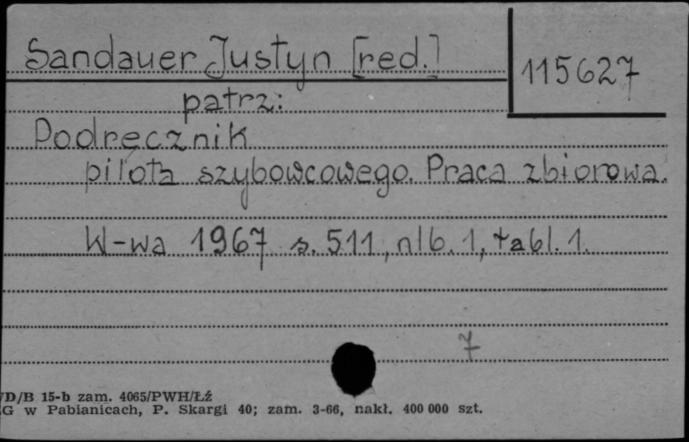 Sandauer Justyn [red.]
115627
patrz:
Podręcznik
pilota szybowcowego. Praca zbiorowa.
W-wa 1967 s. 511, nlb. 1, tabl. 1.
7
/D/B 15-b zam. 4065/PWH/Łź
G w Pabianicach, P. Skargi 40; zam. 3-66, nakł. 400 000 szt.